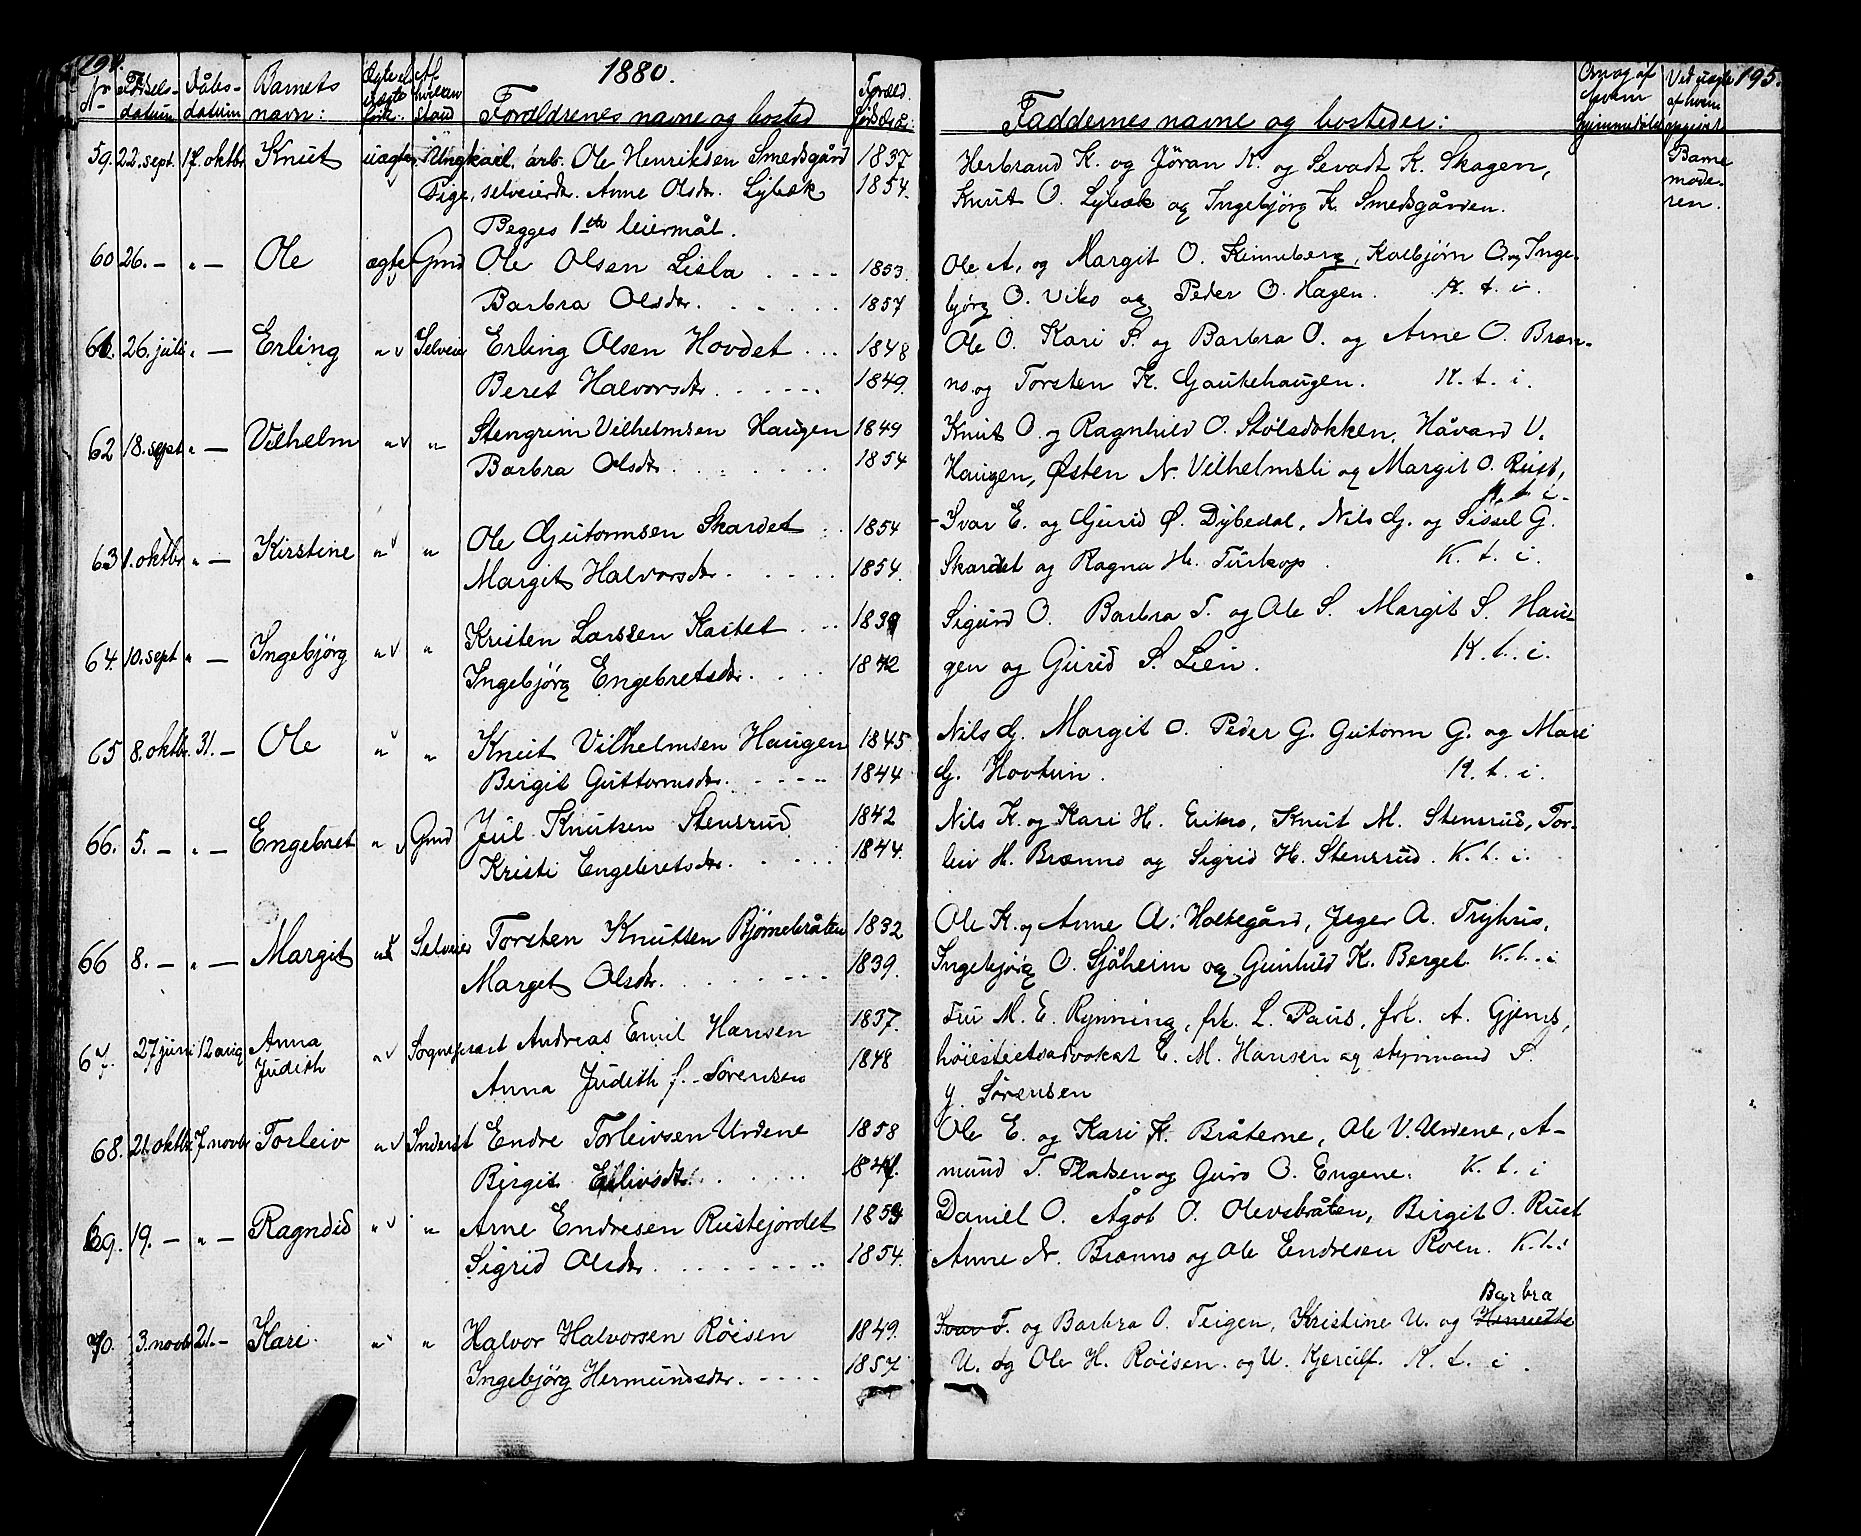 194.
1880.
Nr Fødsels-datum Dåbs-datum Barnets navn: Ægte el. uægte født. Af hvilken stand Forældrenes navne og bosted Foræld. føds.år:
59. 22. sept. 17. oktbr Knut uægte Ungkarl, arb. Ole Henriksen Smedsgård 1837
Pige, selveierdr. Anne Olsdr. Lybæk 1854.
Begges 1ste leiermål.
60 26. — " — Ole ægte Gmd Ole Olsen Lisla 1853
Barbra Olsdr. 1857
61. 26. juli " — Erling " " Selveier Erling Olsen Hovdet 1848
Beret Halvorsdr. 1849.
62 18. sept " — Vilhelm " " " Stengrim Vilhelmsen Haugen 1849
Barbra Olsdr. 1854
63 1. oktbr " — Kirstine " " " Ole Guttormsen Skardet 1854
Margit Halvorsdr. 1854.
64. 10. sept " — Ingebjörg " " " Kristen Larssen Kastet 1839
Ingebjörg Engebretsdr. 1842
65 8. oktbr. 31. — Ole " " " Knut Vilhelmsen Haugen 1845
Birgit Guttormsdr. 1844
66. 5. — " — Engebret " " Gmd Jul Knutsen Stensrud 1842
Kristi Engebretsdr. 1844.
66 8. — " — Margit " " Selveier Torsten Knutsen Bjørnebråten 1832
Marget Olsdr. 1839.
67. 27 juni 12 aug Anna Judith " " Sognepræst Andreas Emil Hansen 1837.
Anna Judith f. Sørensen 1848
68. 21. oktbr 7. novbr Torleiv " " Inderst Endre Torleivsen Urdene 1858
Birgit Eilivsdr.
69. 19. — " — Ragndid " " " Arne Endresen Rustejordet 1853
Sigrid Olsdr. 1854.
70. 3. novbr 21. — Kari " " " Halvor Halvorsen Röisen 1849.
Ingebjörg Hermundsdr. 1857
195.
Faddernes navne og bosteder: Om og af hvem hjemmedøbt Ved uægte af hvem angivet
Herbrand K. og Jöran K. og Sevadt K. Skagen, Barne
Knut O. Lybæk og Ingebjörg K. Smedsgården. mode-
ren.
Ole A. og Margit O. Kinneberg, Kolbjörn O. og Inge-
björg O. Viko og Peder O. Hagen. K. t. i.
Ole O. Kari S. og Barbra O. og Arne O. Bræn-
no og Torsten K. Gaukehaugen. K. t. i.
Knut O. og Ragnhild O. Stølsdokken, Håvard V.
Haugen, Østen N. Vilhelmsli og Margit O. Rust,
K. t. i.
Ivar E. og Gurid Ø. Dybedal, Nils G. og Sissel G.
Skardet og Ragna H. Turkop. K. t. i.
Sigurd O. Barbra T. og Ole S. Margit S. Hau-
gen og Gurid S. Lien. K. t. i.
Nils G. Margit O. Peder G. Gutorm G. og Mari
G. Hovtun. K. t. i.
Nils K. og Kari H. Eikro, Knut M. Stensrud, Tor-
leiv H. Brænno og Sigrid H. Stensrud. K. t. i.
Ole K. og Anne A. Holtegård, Jeger A. Tryhus,
Ingebjörg O. Sjåheim og Gunhild K. Berget K. t. i
Fru M. E. Rynning, frk. L. Paus, frk. A. Gjems,
høiesteetsadvokat E. M. Hansen og styrmand S.
J. Sørensen
Ole E. og Kari K. Bråterne, Ole V. Urdene, A-
mund T. Pladsen og Guro O. Engene. K. t. i
Daniel O. Ågot O. Olevsbråten, Birgit O. Rust
Anne N. Brænno og Ole Endresen Roen. K. t. i
Barbra
Ivar T. og Barbra O. Teigen, Kristine U. og Henriette
U. og Ole H. Röisen. og U. Kjerulf. K. t. i.